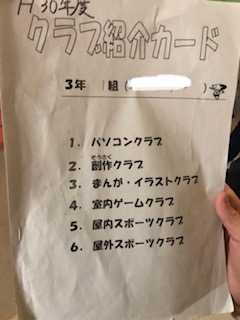 H30年度
クラブ紹介カード
3年 組( )
1. パソコンクラブ
2. 創作クラブ
そうさく
3. まんが・イラストクラブ
4. 室内ゲームクラブ
5. 屋内スポーツクラブ
6. 屋外スポーツクラブ